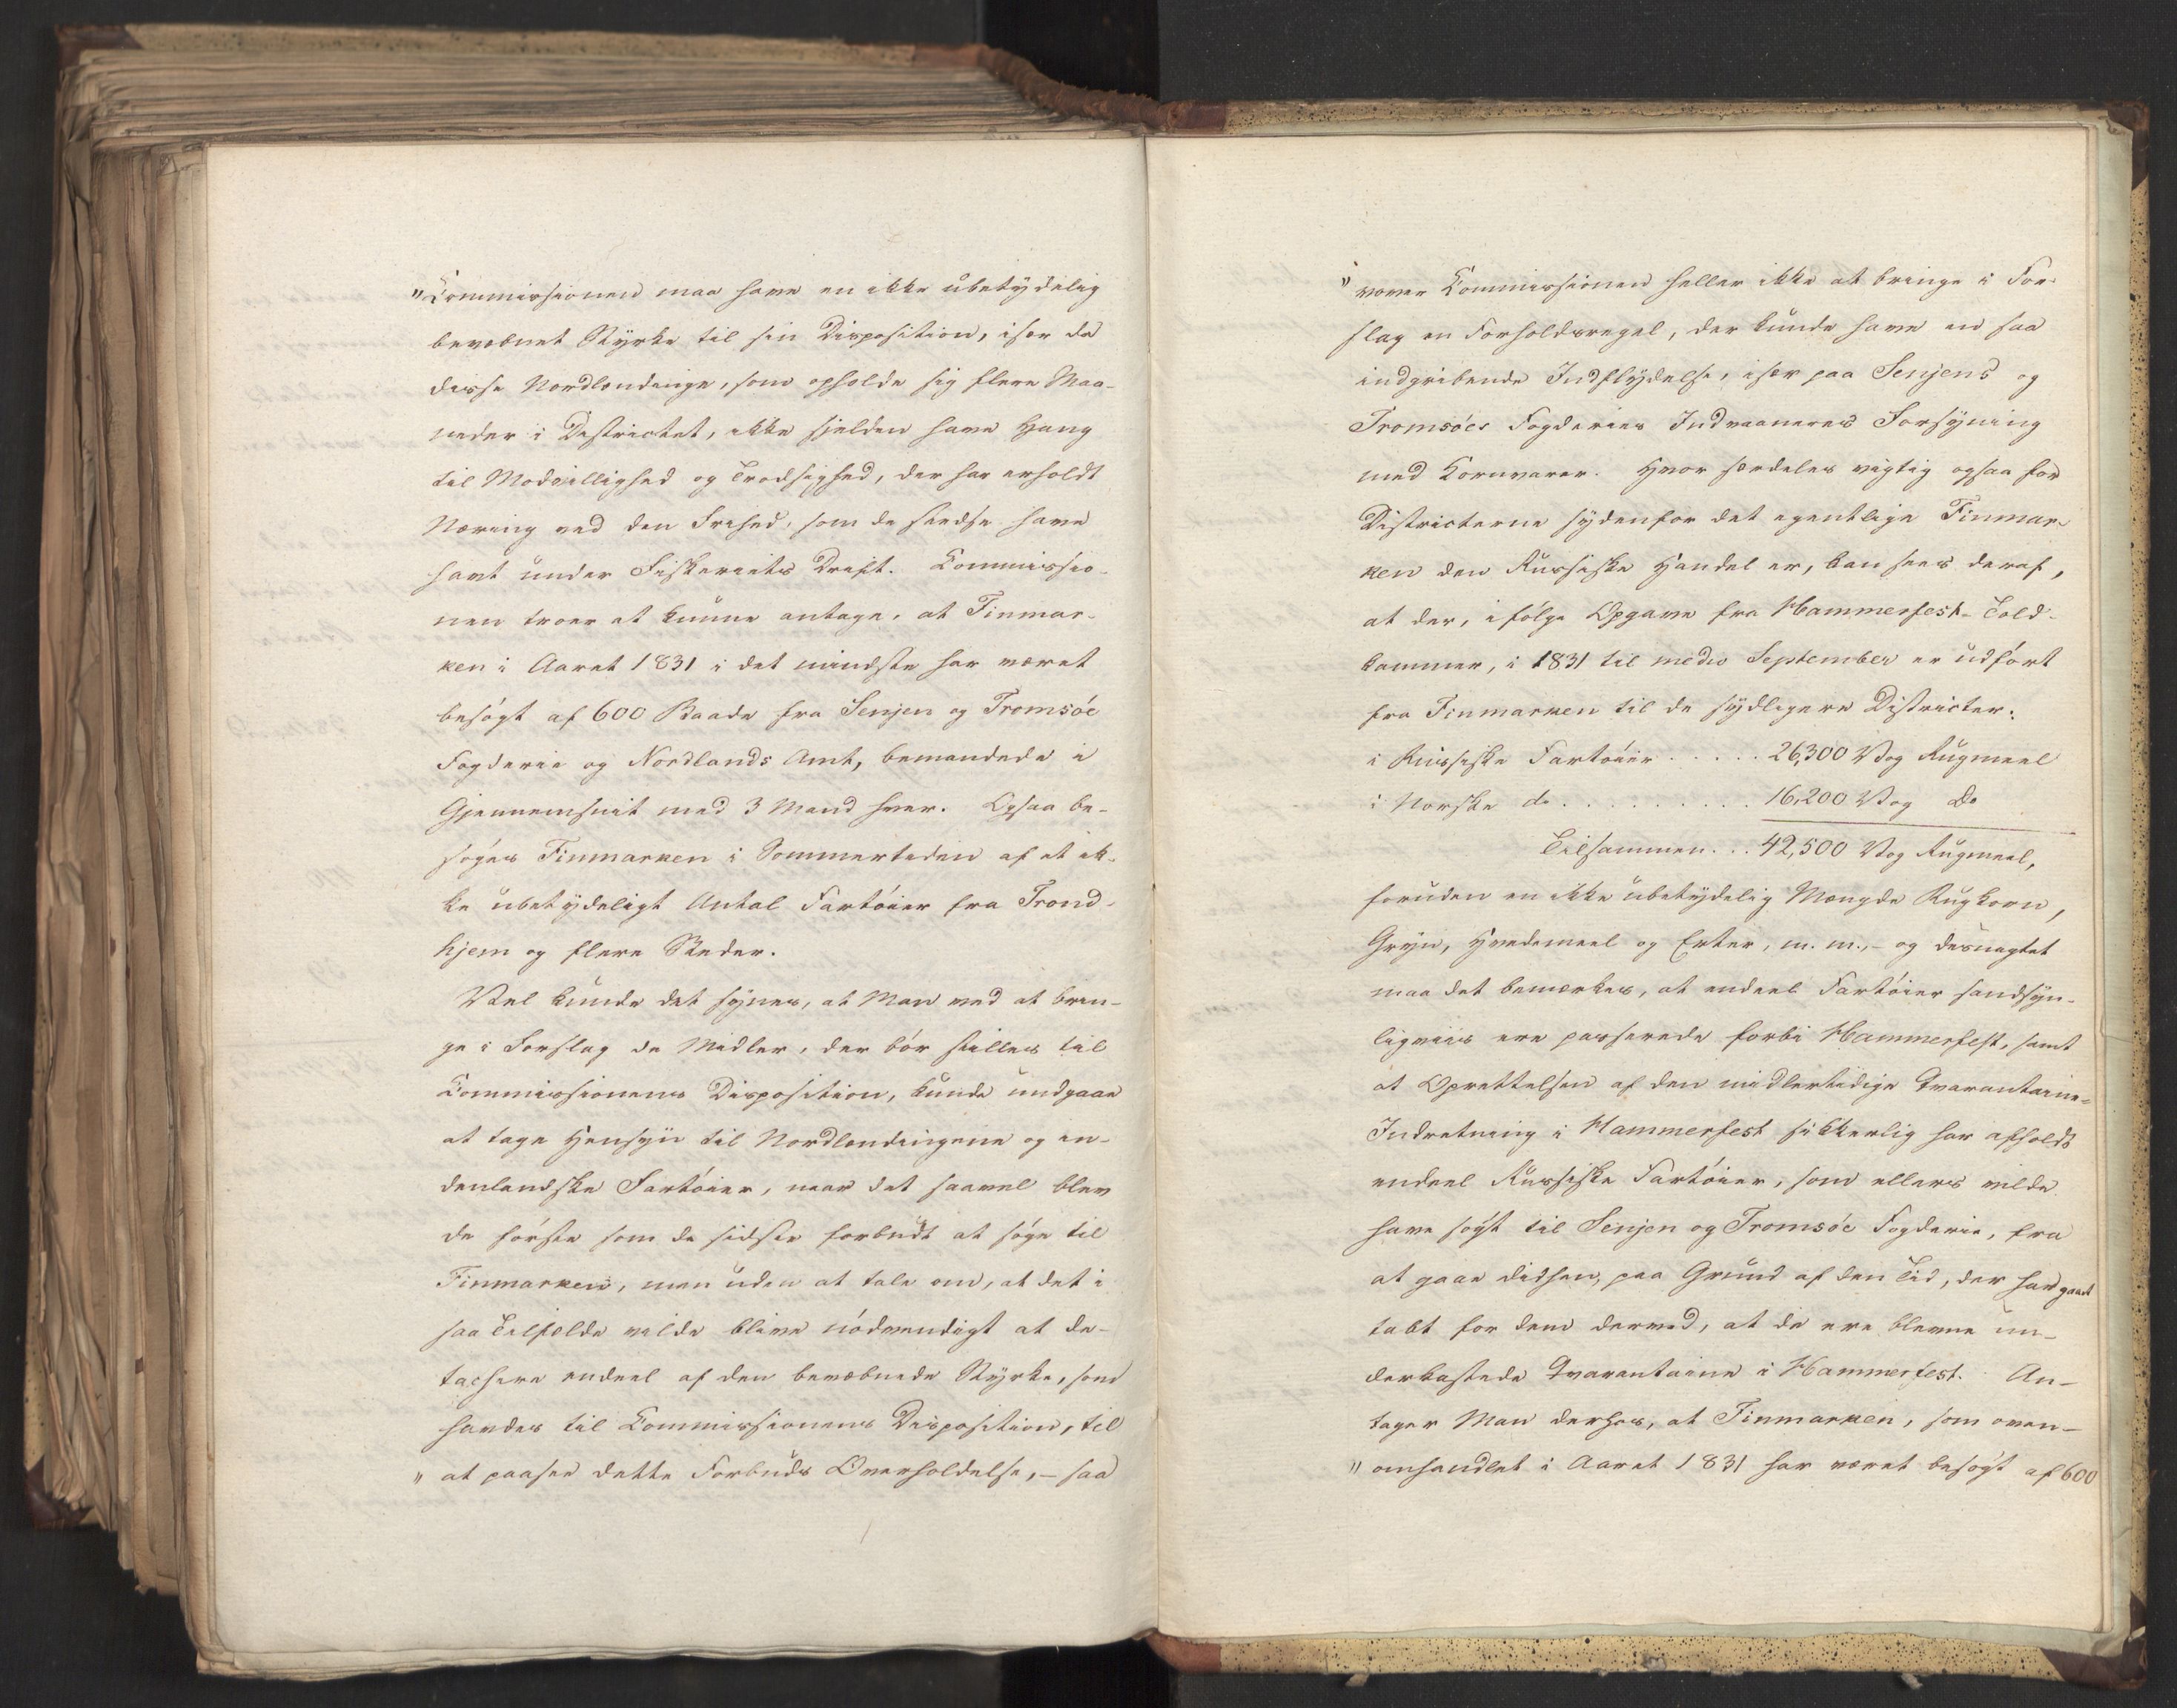 "Commissionen maa have en ikke ubetydelig
bevæbnet Styrke til sin Disposition, især da
disse Nordlændinge, som opholde sig flere Maa-
neder i Districtet, ikke sjelden have Hang
til Modvillighed og Trodsighed, der har erholdt
Næring ved den Frihed, som de stedse have
havt under Fiskeriets Drift. Commissio-
nen troer at kunne antage, at Finmar-
ken i Aaret 1831 i det mindste har været
besögt af 600 Baade fra Senjen og Tromsöe
Fogderie og Nordlands Amt, bemandede i
Gjennemsnit med 3 Mand hver. Ogsaa be-
söges Finmarken i Sommertiden af et ik-
ke ubetydeligt Antal Fartöier fra Trond-
hjem og flere Steder.
Vel kunde det synes, at Man ved at brin-
ge i Forslag de Midler, der bör stilles til
Commissionens Disposition, kunde undgaae
at tage Hensyn til Nordlændingene og in-
denlandske Fartöier, naar det saavel blev
de förste som de sidste forbudt at söge til
Finmarken, men uden at tale om, at det i
saa Tilfælde vilde blive nödvendigt at de-
tachere endeel af den bevæbnede Styrke, som
havdes til Commissionens Disposition, til
" at paasee dette Forbuds Overholdelse, – saa
" vover Commissionen heller ikke at bringe i For-
slag en Forholdsregel, der kunde have en saa
indgribende Indflydelse, især paa Senjens og
Tromsöes Fogderies Indvaaneres Forsyning
med Kornvarer. Hvor særdeles vigtig ogsaa for
Districterne sydenfor det egentlige Finmar-
ken den Russiske Handel er, kan sees deraf,
at der, ifölge Opgave fra Hammerfest-Told-
kammer, i 1831 til medio September er udfört
fra Finmarken til de sydligere Districter:
i Russiske Fartöier . . . . . 26,300 Vog Rugmeel
i Norske do . . . . . . . . . . 16,200 Vog Do
Tilsammen . . . 42,500 Vog Rugmeel,
foruden en ikke ubetydelig Mængde Rugkorn,
Gryn, Hvedemeel og Erter, m. m., – og desuagtet
maa det bemærkes, at endeel Fartöier sandsyn-
ligviis ere passerede forbi Hammerfest, samt
at Oprettelsen af den midlertidige Qvarantaine-
Indretning i Hammerfest sikkerlig har afholdt
endeel Russiske Fartöier, som ellers vilde
have sögt til Senjen og Tromsöe Fogderie, fra
at gaae didhen, paa Grund af den Tid, der har gaaet
tabt for dem derved, at de ere blevne un-
derkastede Qvarantaine i Hammerfest. An-
tager Man derhos, at Finmarken, som oven-
" omhandlet i Aaret 1831 har været besögt af 600